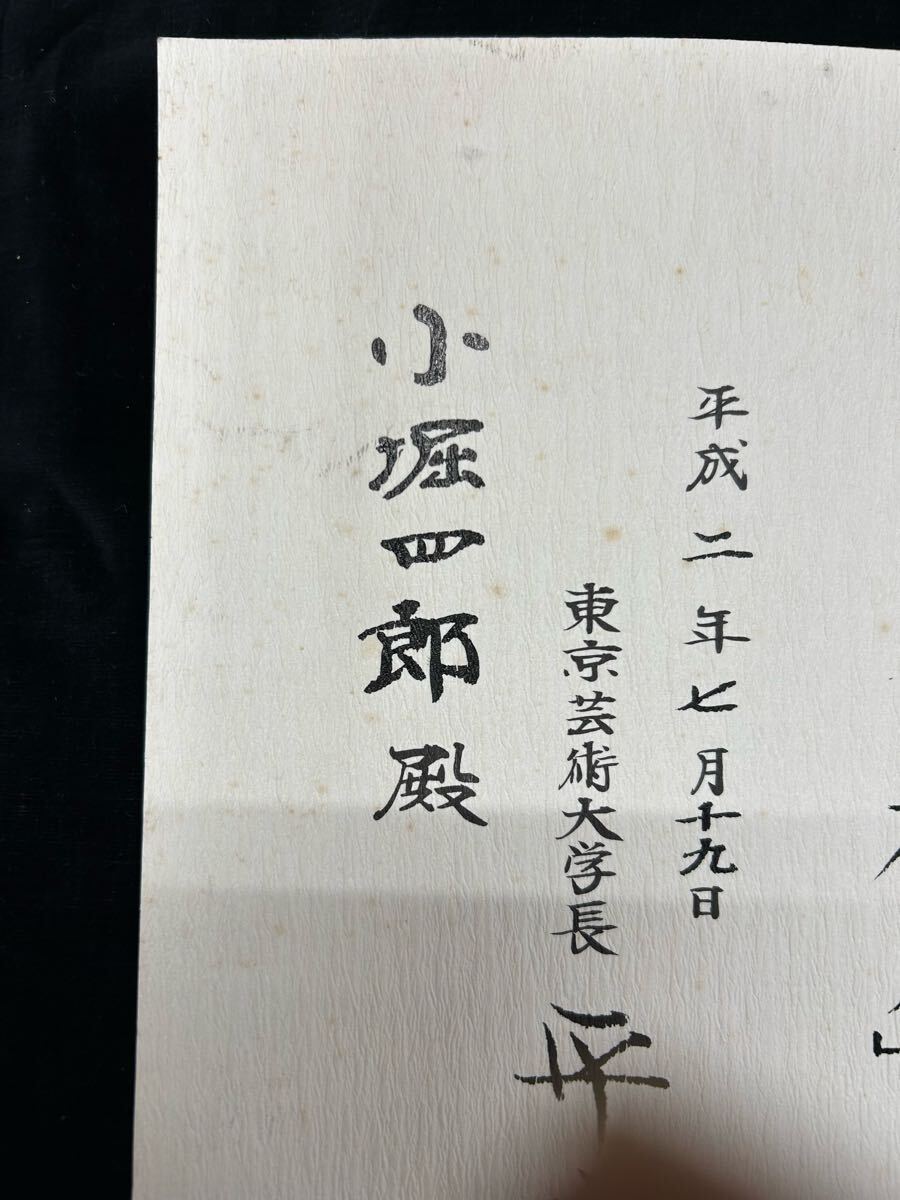 平成二年七月十九日
東京芸術大学長 平
小堀四郎殿